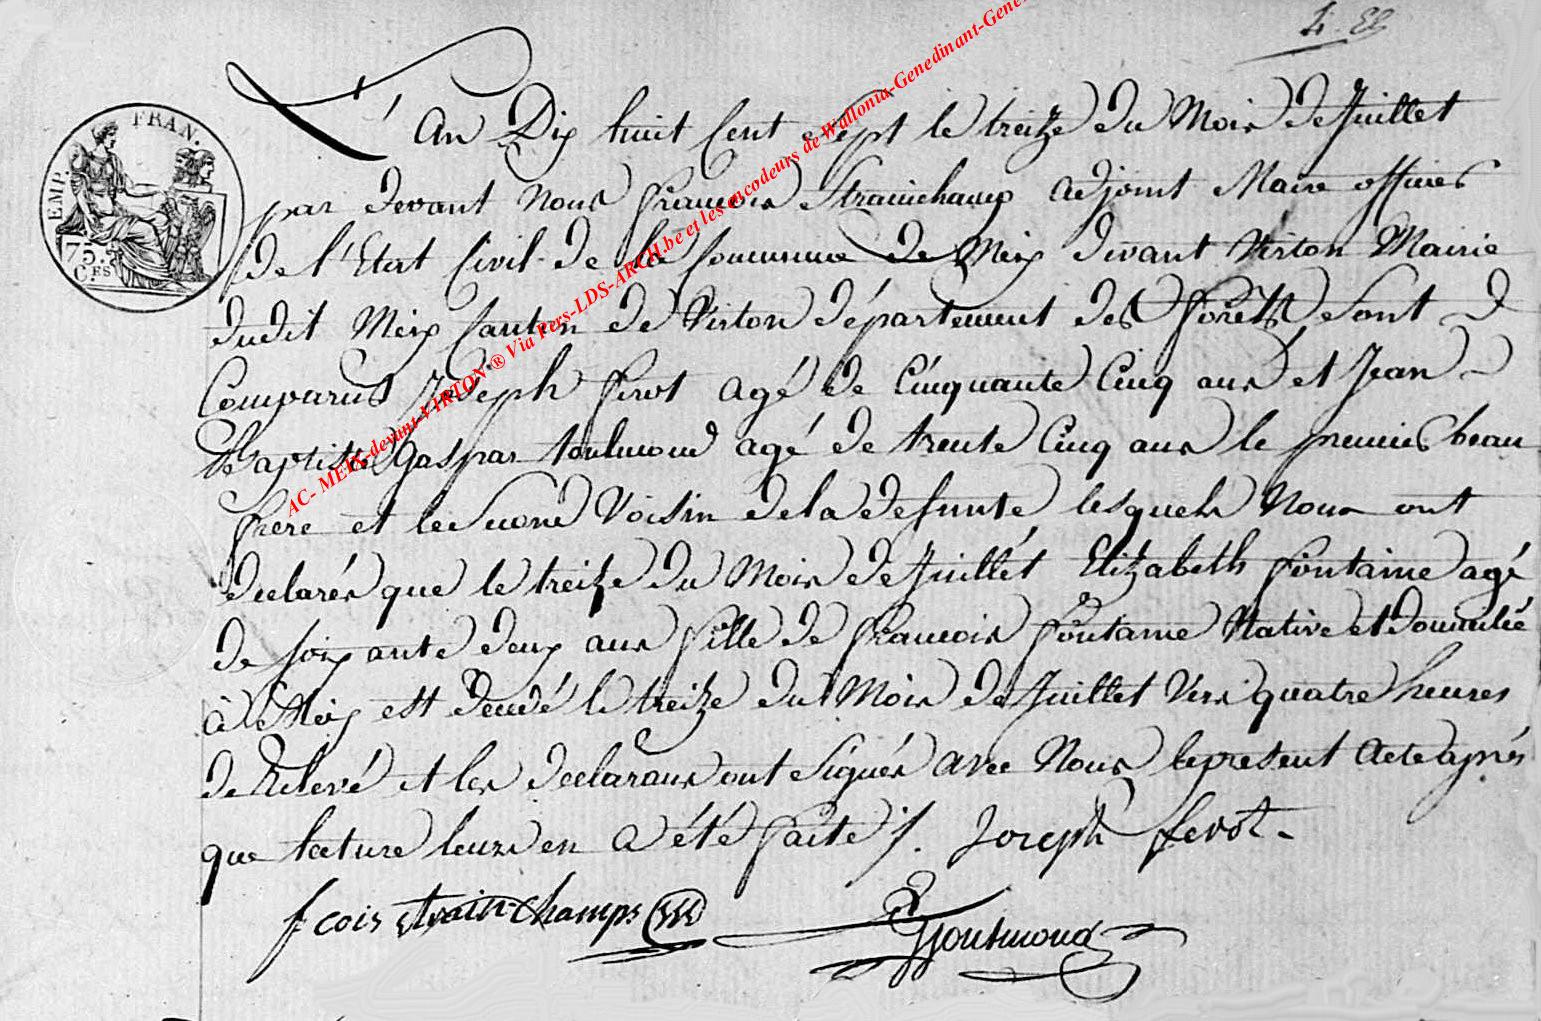 EMP. FRAN.
75.
C.ES
L'An Dix huit Cent Sept le treize du Mois de Juillet
par devant Nous francois Strainchamp adjoint Maire officier
de l'Etat Civil de la Commune de Meix devant Virton Mairie
dudit Meix Canton de Virton département des forêts Sont
Comparus Joseph ferot agé de Cinquante Cinq ans et Jean
Baptiste Gaspar toulmond agé de trente Cinq ans le premier beau
frere et le Second Voisin de la defunte lesquels Nous ont
declarés que le treize du Mois de Juillet Elizabeth fontaine agé
de soixante deux ans fille de francois fontaine Native et domicilié
à Meix est décédé le treize du Mois de Juillet Vers quatre heures
de Relevé et les declarans ont Signés avec Nous le present acte après
que lecture leurs en a été faite /. Joseph ferot
fcois strainchamps
toulmond
AC- MEIX-devant-VIRTON ® Via Pers-LDS-ARCH.be et les encodeurs de Wallonia-Genedinant-Gene